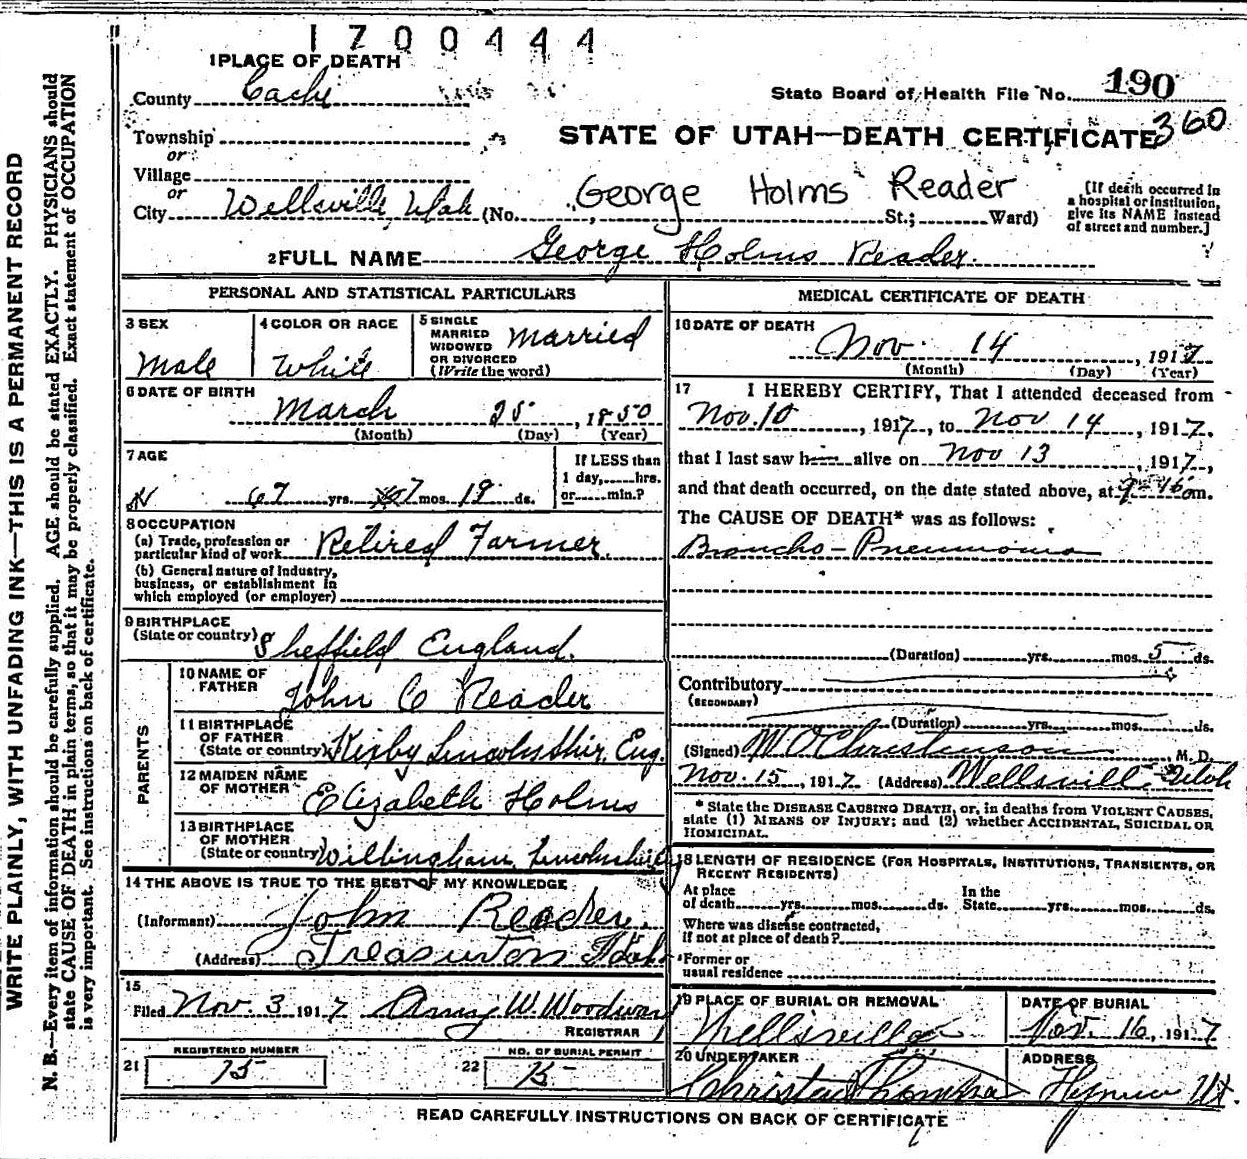 1700444
1 PLACE OF DEATH
County Cache
State Board of Health File No. 190
360
Township
STATE OF UTAH—DEATH CERTIFICATE
or
Village
or
City Wellsville, Utah (No. George Holms Reader St.; Ward)
(If death occurred in a hospital or institution, give its NAME instead of street and number.)
2 FULL NAME George Holms Reader.
PERSONAL AND STATISTICAL PARTICULARS
3 SEX Male
4 COLOR OR RACE White
5 SINGLE MARRIED WIDOWED OR DIVORCED (Write the word) Married
6 DATE OF BIRTH March 25, 1850
(Month) (Day) (Year)
7 AGE
67 yrs. 7 mos. 19 ds.
If LESS than 1 day, hrs. or min.?
8 OCCUPATION
(a) Trade, profession or particular kind of work Retired Farmer.
(b) General nature of industry, business, or establishment in which employed (or employer)
9 BIRTHPLACE
(State or country) Sheffield England.
PARENTS
10 NAME OF FATHER John C Reader
11 BIRTHPLACE OF FATHER (State or country) Kirby Lincolnshir, Eng.
12 MAIDEN NAME OF MOTHER Elizabeth Holms
13 BIRTHPLACE OF MOTHER (State or country) Willingham, Lincolnshire
14 THE ABOVE IS TRUE TO THE BEST OF MY KNOWLEDGE
(Informant) John Reader.
(Address) Treasurton Idaho
15
Filed Nov. 3 1917 Amy W. Woodward
REGISTRAR
21 REGISTERED NUMBER 75
22 NO. OF BURIAL PERMIT 15
MEDICAL CERTIFICATE OF DEATH
16 DATE OF DEATH
Nov. 14, 1917
(Month) (Day) (Year)
17 I HEREBY CERTIFY, That I attended deceased from
Nov. 10, 1917, to Nov 14, 1917.
that I last saw him alive on Nov 13, 1917,
and that death occurred, on the date stated above, at m.
The CAUSE OF DEATH* was as follows:
Broncho-Pneumonia
(Duration) yrs. mos. 5 ds.
Contributory
(SECONDARY)
(Duration) yrs. mos. ds.
(Signed) W O Christenson, M. D.
Nov. 15, 1917 (Address) Wellsvill Utah
* State the DISEASE CAUSING DEATH, or, in deaths from VIOLENT CAUSES, state (1) MEANS OF INJURY; and (2) whether ACCIDENTAL, SUICIDAL OR HOMICIDAL.
18 LENGTH OF RESIDENCE (FOR HOSPITALS, INSTITUTIONS, TRANSIENTS, OR RECENT RESIDENTS)
At place of death yrs. mos. ds. In the State yrs. mos. ds.
Where was disease contracted, if not at place of death?
Former or usual residence
19 PLACE OF BURIAL OR REMOVAL Wellsville
DATE OF BURIAL Nov. 16, 1917
20 UNDERTAKER
ADDRESS
READ CAREFULLY INSTRUCTIONS ON BACK OF CERTIFICATE
WRITE PLAINLY, WITH UNFADING INK—THIS IS A PERMANENT RECORD
N. B.—Every item of information should be carefully supplied. AGE should be stated EXACTLY. PHYSICIANS should
state CAUSE OF DEATH in plain terms, so that it may be properly classified. Exact statement of OCCUPATION
is very important. See instructions on back of certificate.